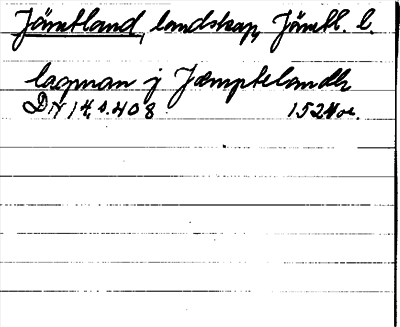 Jämtland, landskap, Jämtl. l.
lagman j Jæmptelandh
DN 14, s. 408 1524 or.